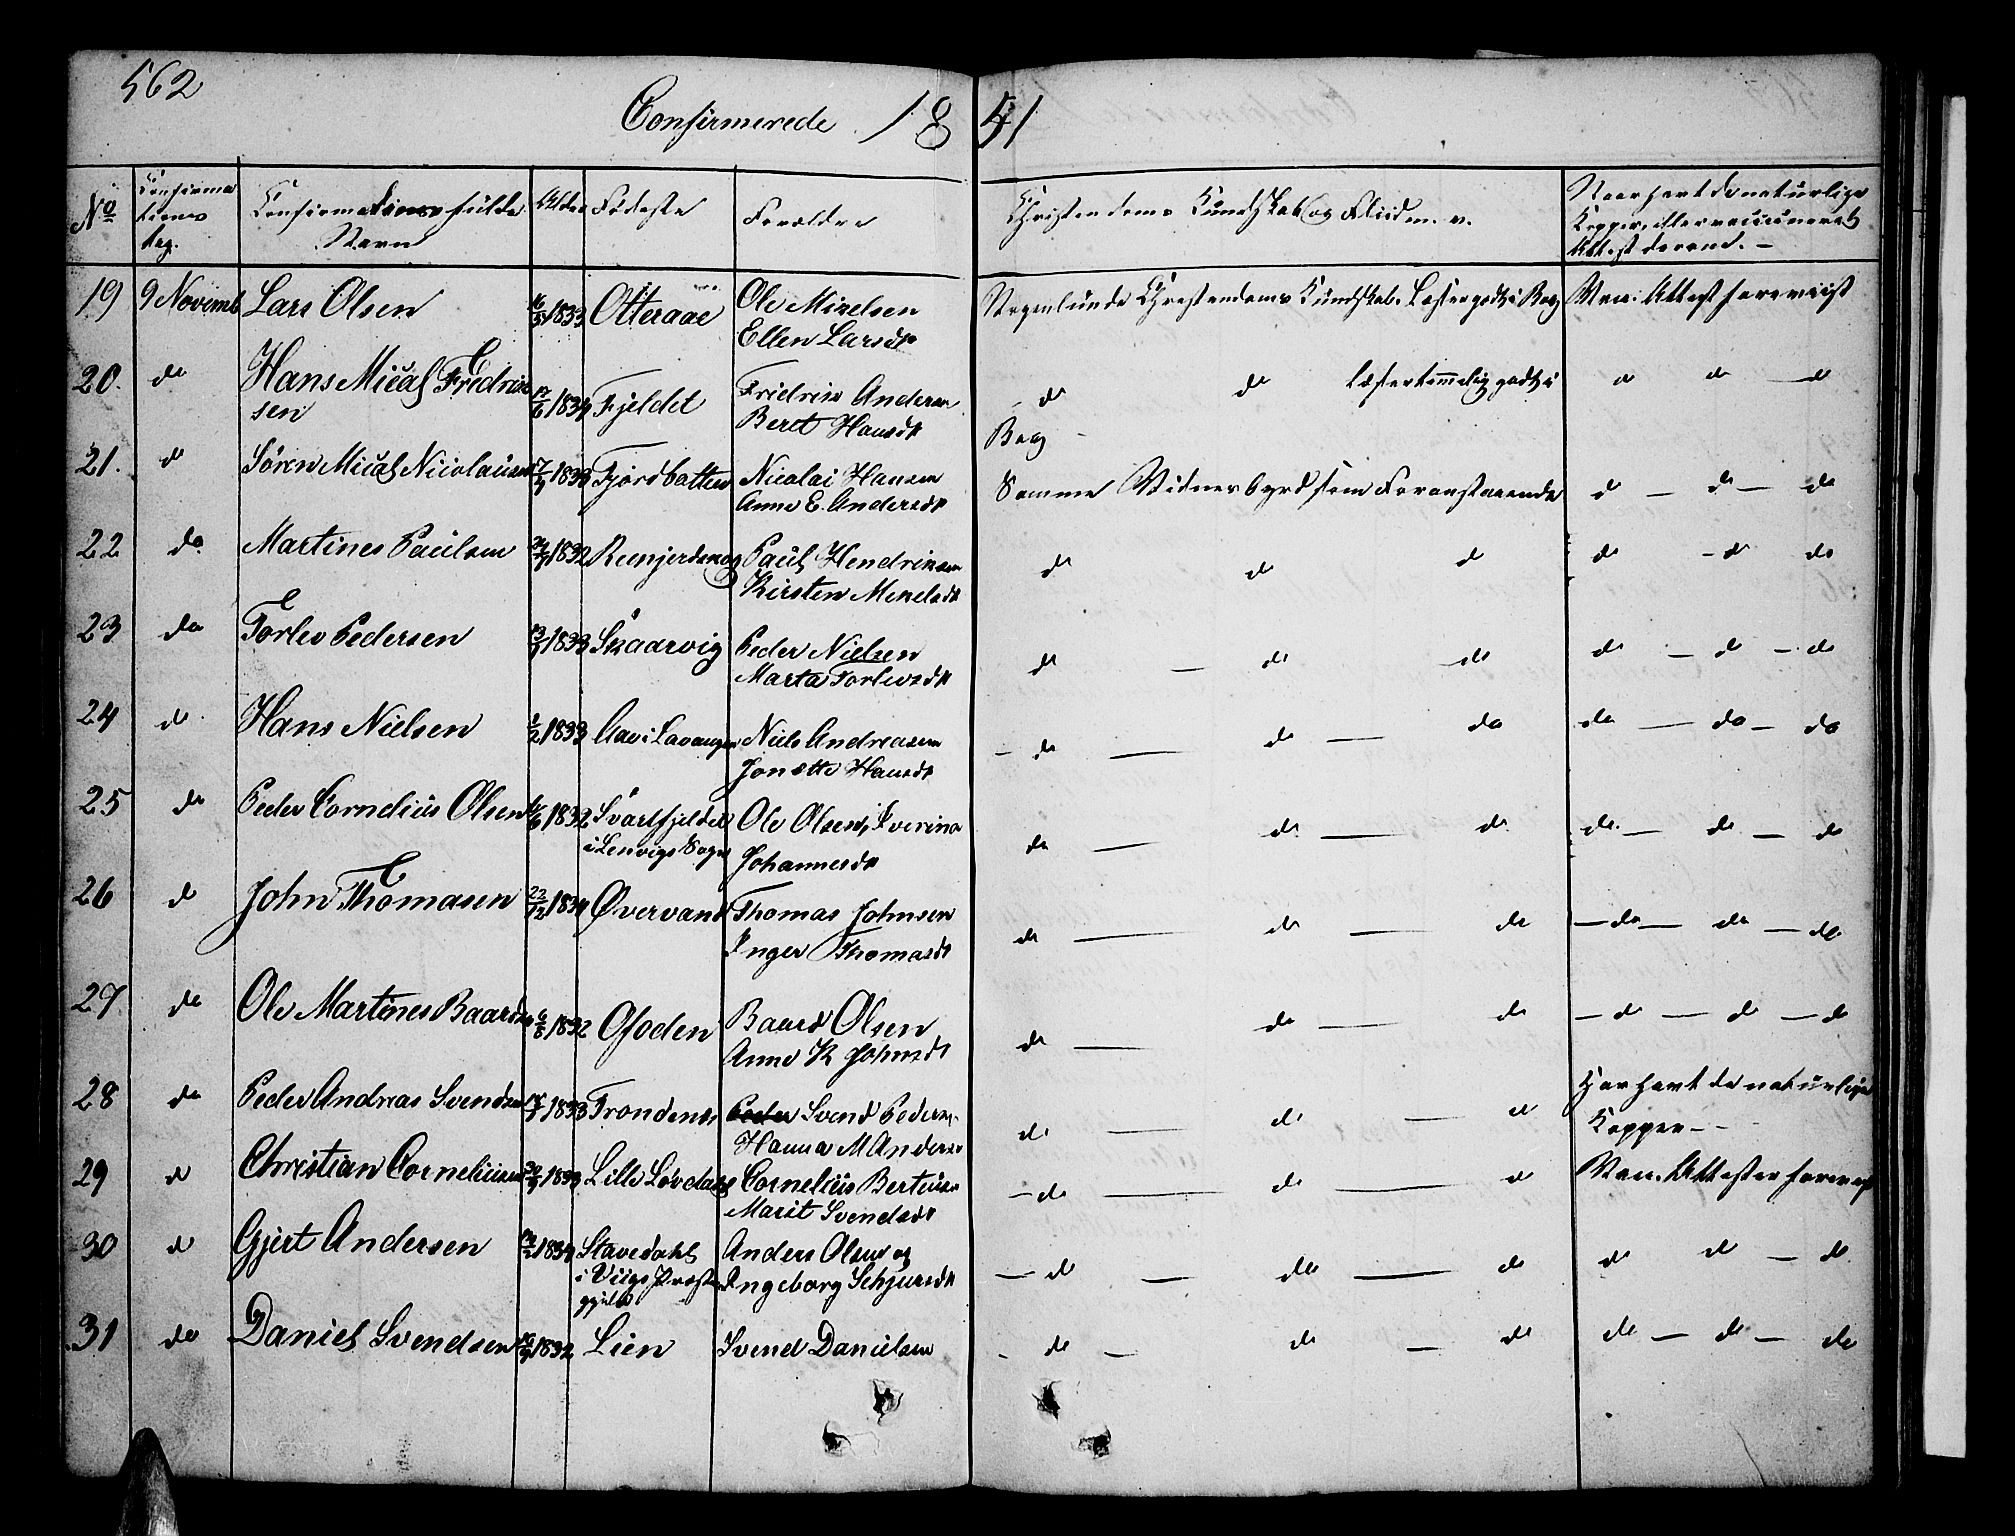 562
Confirmerede 1851
No
Confirma
tions
dag.
Confirmandens fulde
Navn
Alder
Fødeste
Forældre
Christendoms Kundskab og Fliid m. v.
Naar havt de naturlige
Kopper, eller vaccineret
Attest derom. -
19 9 Novemb Lars Olsen 16/3 1833 Otteraae Ole Mikelsen
Ellen Larsdt
Nogenlunde Christendoms Kundskab. Læser godt i Bog Vac: Attest foreviist
20. do Hans Micäl Fredrik
sen 17/6 1834 Fjeldet Fridrik Andersen
Beret Hansdt
do do læser temmelig godt i d d — d
Bog -
21. d Søren Micäl Nicolaisen 7/7 1833 Fjordbotten Nicolai Hansen
Anne E. Andersdt
Samme Vidnesbyrd som Foranstaaende d — d — do
22 do Martines Paulsen 1832 Paul Hendriksen
Kirsten Mikelsdt
do d d do - d do
23 do Torlev Pedersen 13/7 1833 Skaarvig Peder Nielsen
Marta Torlevsdt
do — do — do do — d — do
24 d. Hans Nielsen 1/2 1833 Aae i Lavangen Niels Andreasen
Jonette Hansdt
- do — do — do do — do — do
25 do Peder Cornelius Olsen 1832 Svartfjeldet
i Lenvigs Sogn
Ole Olsen, Iverina
Johannesdt
do — do — do do. — do — do
26 d John Thomasen 22/12 1834 Øvervand Thomas Johnsen
Inger Thomasdt
do — do — do — do — do — do
27. do Ole Martines Baards 6/8 1832 Gfoden Baard Olsen
Anne K Johnsdt
do — do — do — d — d — do
28 do Peder Andreas Svendsen 1833 Trondenæs Svend Peders
Hanna M Anders
do do — d Har havt de naturlige
Kopper - -
29 d Christian Corneliusen 1833 Lille Løvdahl Cornelius Bertius
Marit Svendsdt
- do — do — d Vac. Attester forevist
30 d Gjert Andersen 1834 Stavedahl
i Viigs Præste
gjeld
Anders Olsen og
Ingeborg Schjursdt
— do — do — do d d — do
31 do Daniel Svendsen 1832 Lien Svend Danielsen
- do — do — do do — do — do